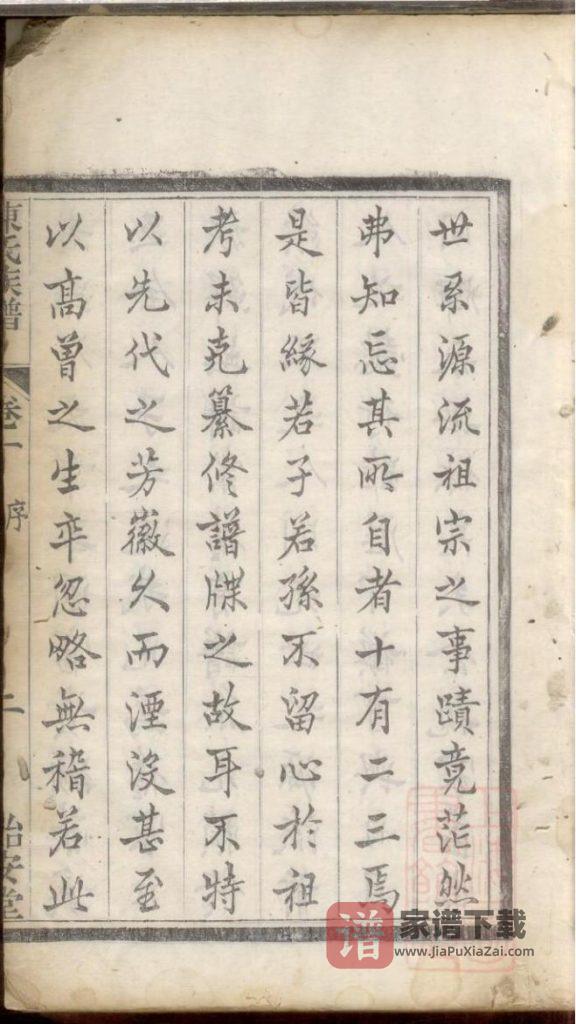 世系源流祖宗之事蹟竟茫然
弗知忘其所自者十有二三焉
是皆緣若子若孫不留心於祖
考未克纂修譜牒之故耳不特
以先代之芳徽久而湮沒甚至
以高曾之生卒忽略無稽若此
陳氏族譜
卷一
序
二
怡安堂
谱
家谱下载
www.JiaPuXiaZai.com